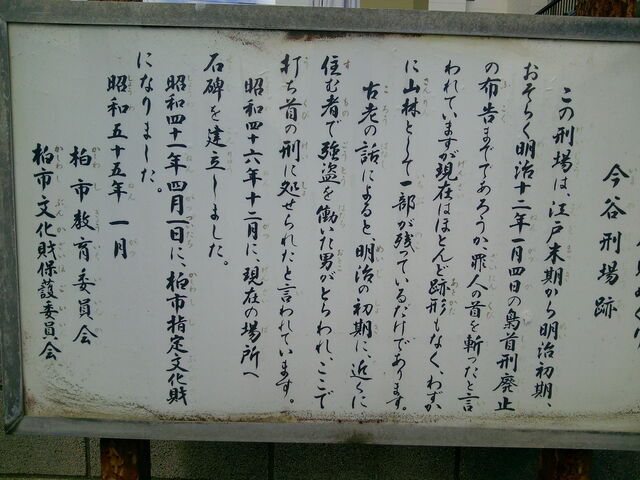 今谷刑場跡
この刑場は、江戸末期から明治初期、
おそらく明治十二年一月四日の梟首刑廃止
の布告まででであろうか、罪人の首を斬ったと言
われていますが現在はほとんど跡形もなく、わずか
に山林として一部が残っているだけであります。
古老の話によると、明治の初期に、近くに
住む者で強盗を働いた男がとらわれ、ここで
打ち首の刑に処せられたと言われています。
昭和四十六年十二月に、現在の場所へ
石碑を建立しました。
昭和四十一年四月一日に、柏市指定文化財
になりました。
昭和五十五年 一月
柏市教育委員会
柏市文化財保護委員会